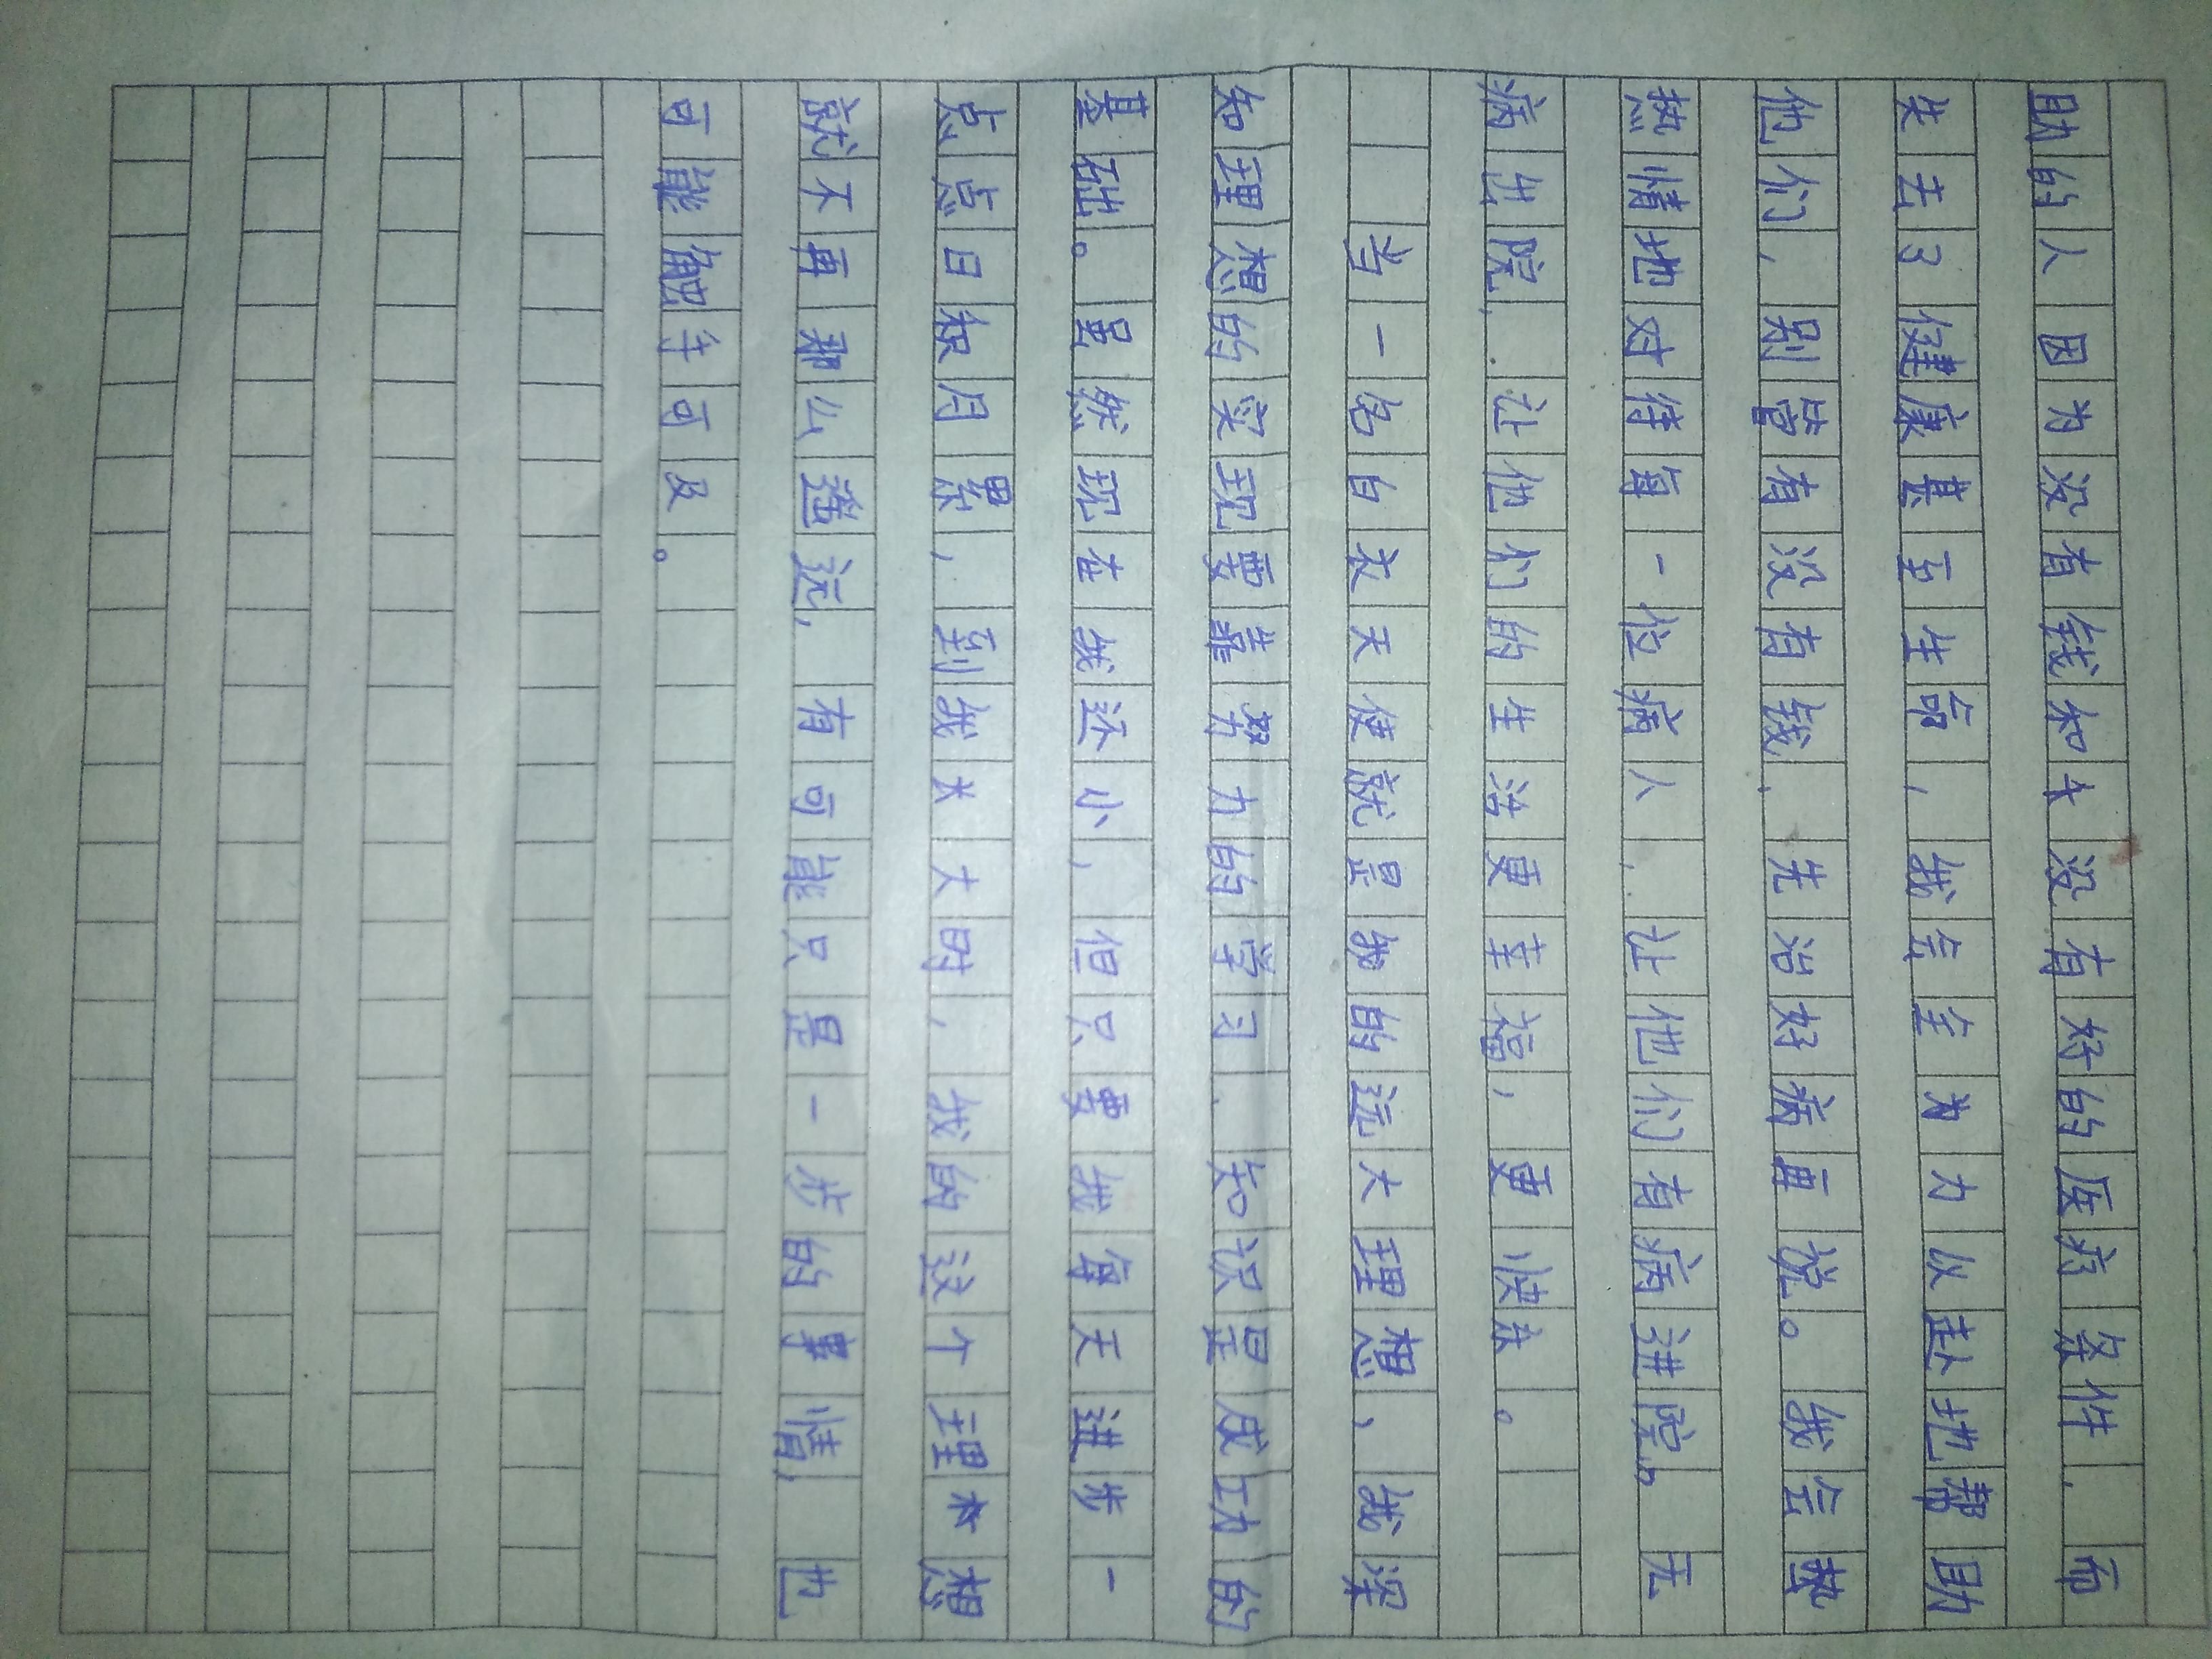 助的人因为没有钱和太没有好的医疗条件，而
失去了健康甚至生命，我会全力以赴地帮助
他们，别管有没有钱，先治好病再说。我会热
热情地对待每一位病人，让他们有病进院，无
病出院，让他们的生活更幸福，更快乐。
当一名白衣天使就是我的远大理想，我深
知理想的实现要靠努力的学习，知识是成功的
基础。虽然现在我还小，但只要我每天进步一
点点日积月累，到我长大时，我的这个理想
就不再那么遥远，有可能只是一步的事情，也
可能触手可及。